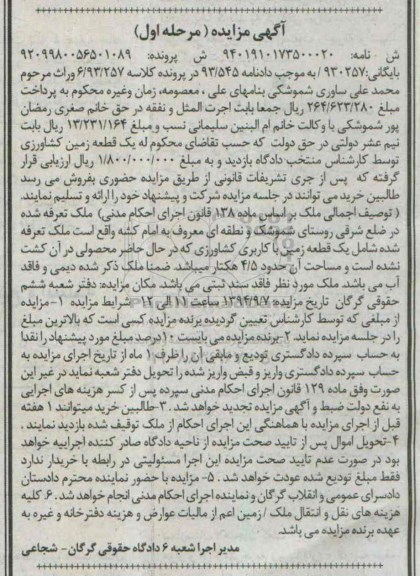 آگهی مزایده ( مرحله اول)
ش نامه: ۹۴۰۱۹۱۰۱۷۳۵۰۰۰۲۰ ش پرونده: ۹۲۰۹۹۸۰۰۵۶۵۰۱۰۸۹
بایگانی:۹۳۰۲۵۷ / به موجب دادنامه ۹۳/۵۴۵ در پرونده کلاسه ۶/۹۳/۲۵۷ وراث مرحوم
محمد علی ساوری شموشکی بنامهای علی ، معصومه، زمان وغیره محکوم به پرداخت
مبلغ ۲۶۴/۶۲۳/۲۸۰ ریال جمعا بابت اجرت المثل و نفقه در حق خانم صغری رمضان
پور شموشکی با وکالت خانم ام البنین سلیمانی نسب و مبلغ ۱۳/۲۳۱/۱۶۴ ریال بابت
نیم عشر دولتی در حق دولت که حسب تقاضای محکوم له یک قطعه زمین کشاورزی
توسط کارشناس منتخب دادگاه بازدید و به مبلغ ۱/۸۰۰/۰۰۰/۰۰۰ ریال ارزیابی قرار
گرفته که پس از جری تشریفات قانونی از طریق مزایده حضوری بفروش می رسد
طالبین خرید می توانند در جلسه مزایده شرکت و پیشنهاد خود را ارائه و تسلیم نمایند.
( توصیف اجمالی ملک بر اساس ماده ۱۳۸ قانون اجرای احکام مدنی) ملک تعرفه شده
در ضلع شرقی روستای شموشک و نطقه ای معروف به امام کشه واقع است ملک تعرفه
شده شامل یک قطعه زمین با کاربری کشاورزی که در حال حاضر محصولی در آن کشت
نشده است و مساحت آن حدود ۴/۵ هکتار میباشد. ضمنا ملک ذکر شده دیمی و فاقد
آب می باشد. ملک مورد نظر فاقد سند ثبتی می باشد. مکان مزایده: دفتر شعبه ششم
حقوقی گرگان تاریخ مزایده: ۱۳۹۴/۹/۷ ساعت ۱۱ الی ۱۲ شرایط مزایده ۱-مزایده
از مبلغی که توسط کارشناس تعیین گردیده برنده مزایده کسی است که بالاترین مبلغ
را در جلسه مزایده نماید. ۲-برنده مزایده می بایست ۱۰درصد مبلغ مورد پیشنهاد را نقدا
به حساب سپرده دادگستری تودیع و مابقی آن را ظرف ۱ ماه از تاریخ اجرای مزایده به
حساب سپرده دادگستری واریز و قبض واریز شده را تحویل دفتر شعبه نماید در غیر این
صورت وفق ماده ۱۲۹ قانون اجرای احکام مدنی سپرده پس از کسر هزینه های اجرایی
به نفع دولت ضبط و آگهی مزایده تجدید خواهد شد. ۳-طالبین خرید میتوانند ۱ هفته
قبل از اجرای مزایده با هماهنگی این اجرای احکام از ملک توقیف شده بازدید نمایند .
۴-تحویل اموال پس از تایید صحت مزایده از ناحیه دادگاه صادر کننده اجراییه خواهد
بود در صورت عدم تایید صحت مزایده این اجرا مسئولیتی در رابطه با خریدار ندارد
فقط مبلغ تودیع شده عودت خواهد شد. ۵- مزایده با حضور نماینده محترم دادستان
دادسرای عمومی و انقلاب گرگان و نماینده اجرای احکام مدنی انجام خواهد شد. ۶. کلیه
هزینه های نقل و انتقال ملک / زمین اعم از مالیات عوارض و هزینه دفترخانه و غیره به
عهده برنده مزایده می باشد.
مدیر اجرا شعبه ۶ دادگاه حقوقی گرگان- شجاعی